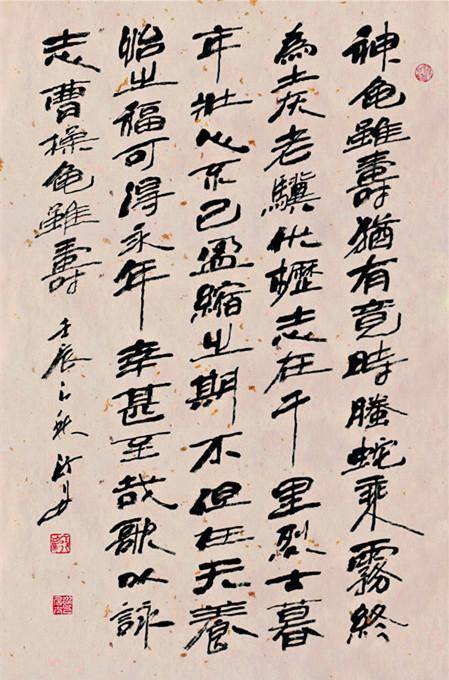 神龜雖壽猶有竟時螣蛇乘霧終
為土灰老驥伏櫪志在千里烈士暮
年壯心不已盈縮之期不但在天養
怡之福可得永年幸甚至哉歌以詠
志曹操龜雖壽 壬辰之秋